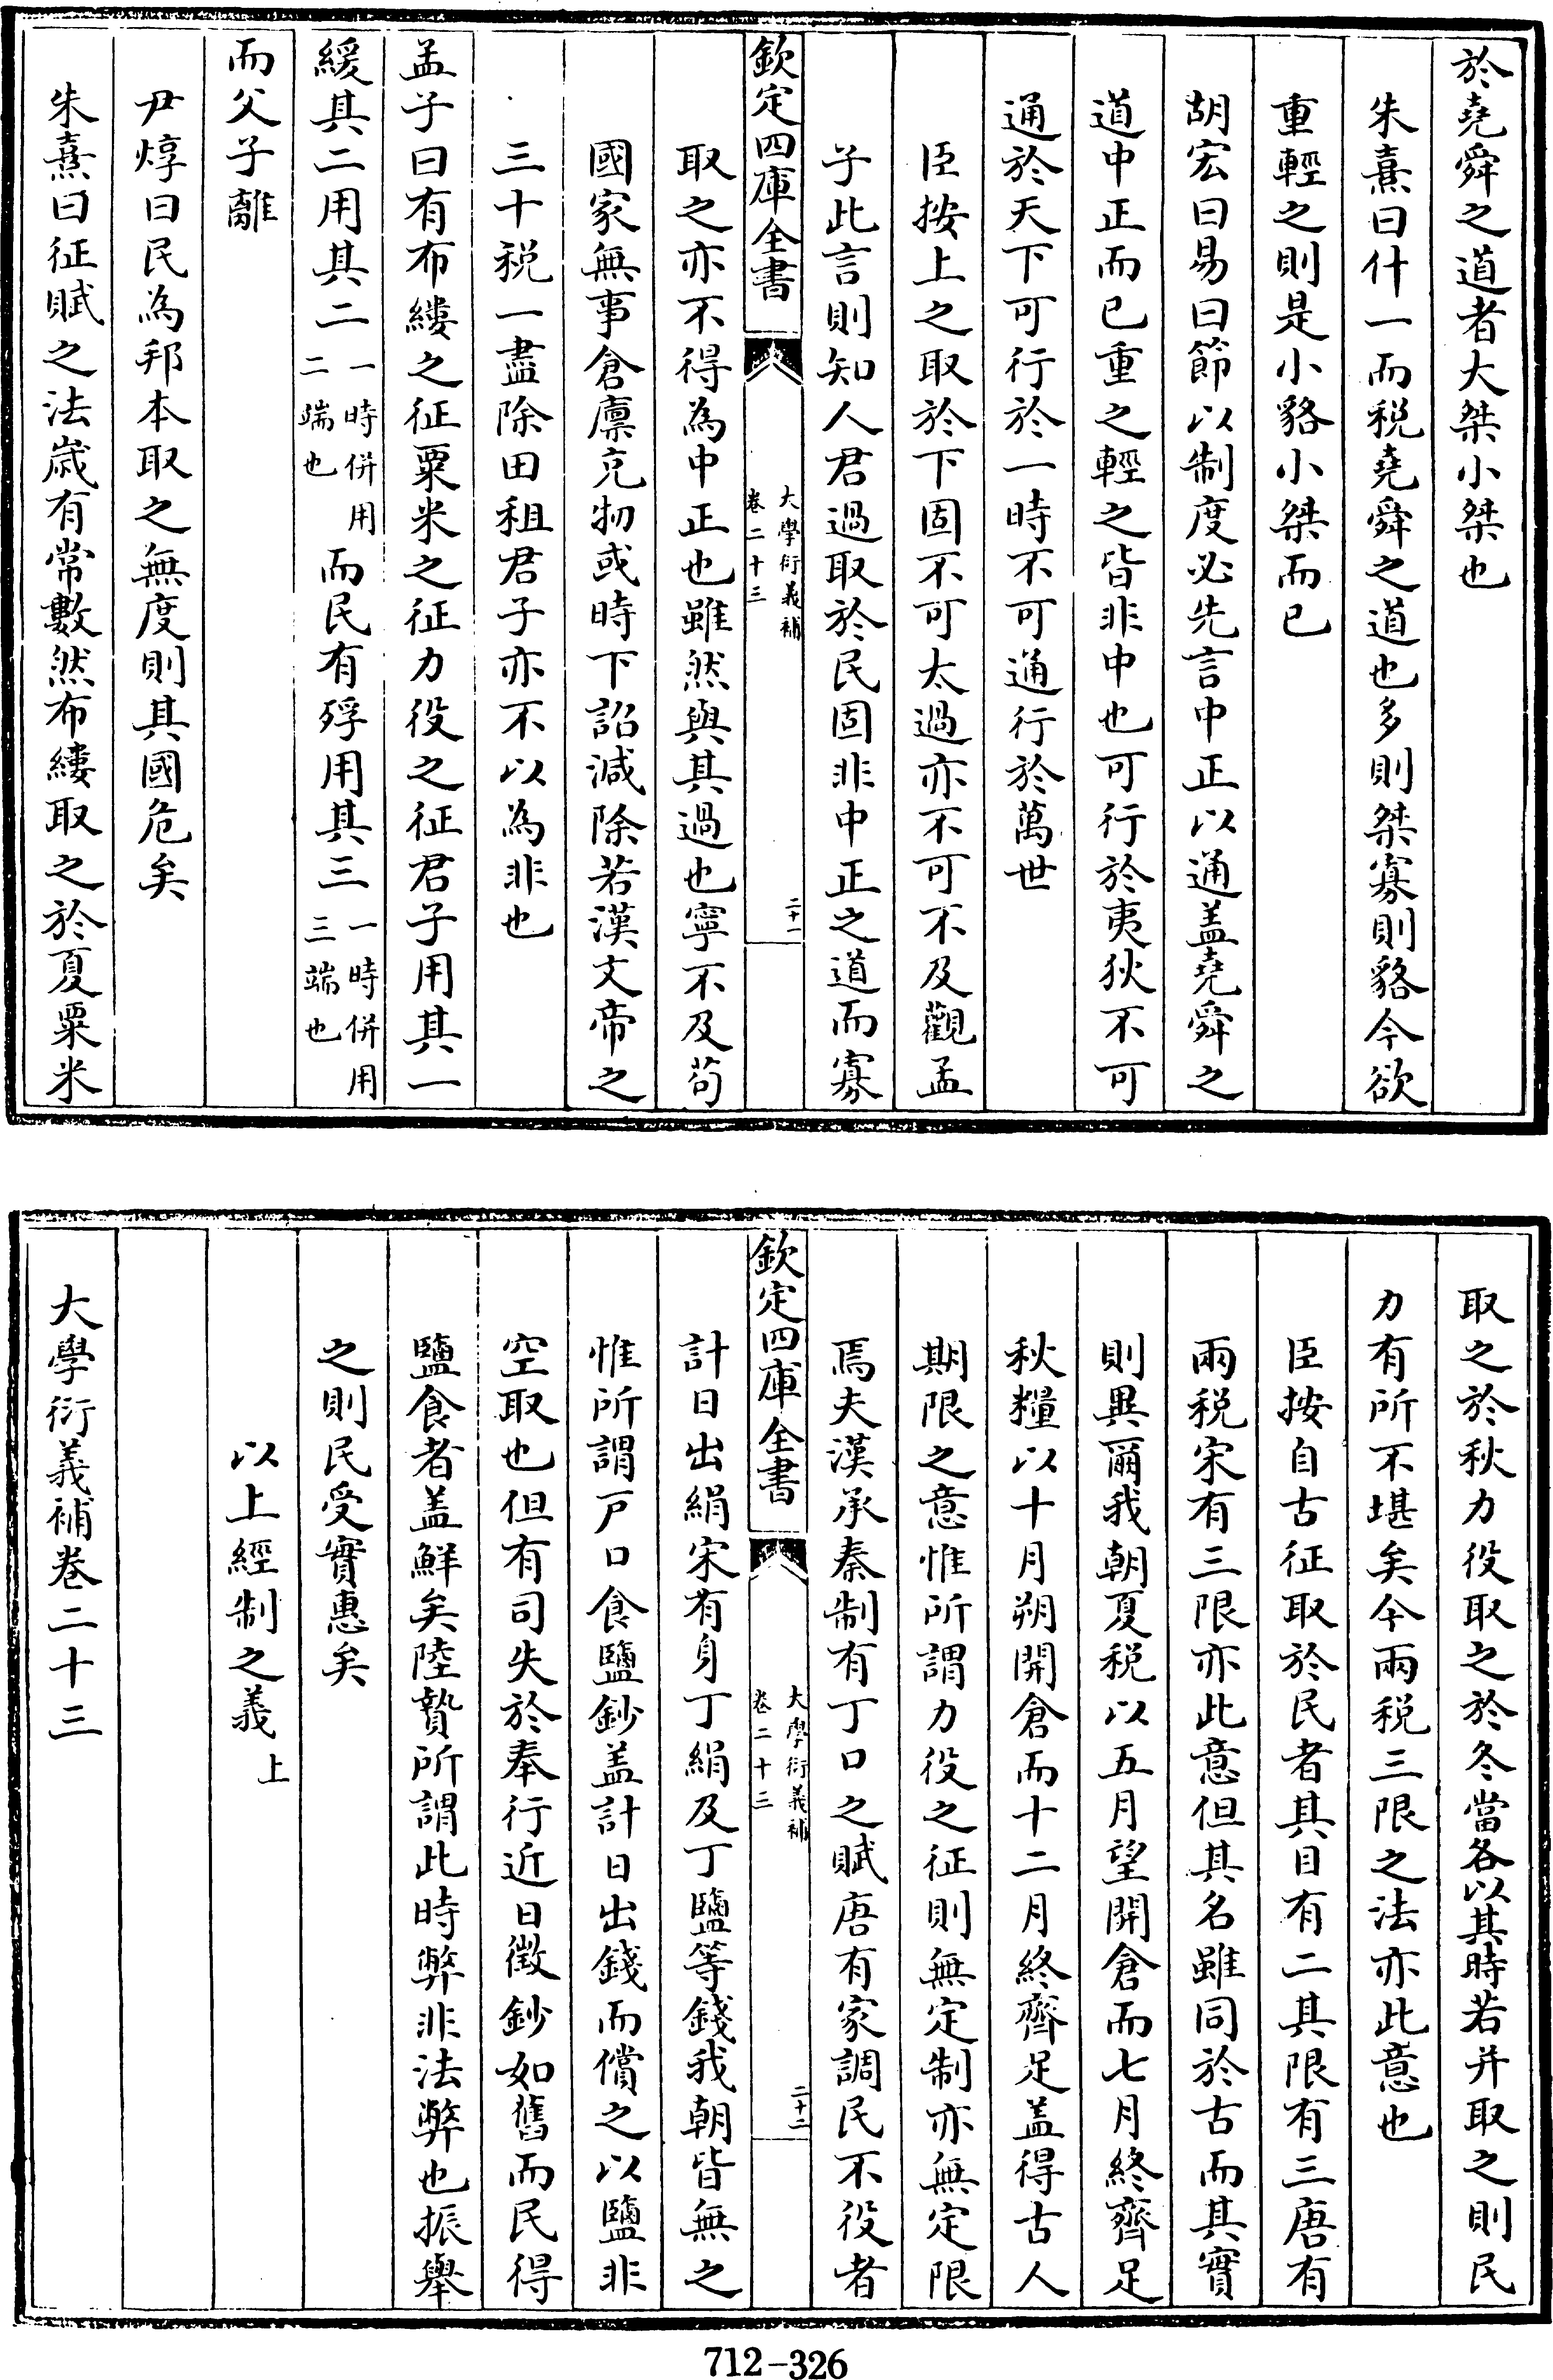 於堯舜之道者大桀小桀也
朱熹曰什一而税堯舜之道也多則桀寡則貉今欲
重輕之則是小貉小桀而已
胡宏曰易曰節以制度必先言中正以通盖堯舜之
道中正而已重之輕之皆非中也可行於夷狄不可
通於天下可行於一時不可通行於萬世
臣按上之取於下固不可太過亦不可不及觀孟
子此言則知人君過取於民固非中正之道而寡
欽定四庫全書
大學衍義補
卷二十三
二十一
取之亦不得為中正也雖然與其過也寧不及茍
國家無事倉廪充物或時下詔減除若漢文帝之
三十税一盡除田租君子亦不以為非也
孟子曰有布縷之征粟米之征力役之征君子用其一
緩其二用其二一時併用二端也而民有殍用其三一時併用三端也
而父子離
尹焞曰民為邦本取之無度則其國危矣
朱熹曰征賦之法歲有常數然布縷取之於夏粟米
取之於秋力役取之於冬當各以其時若并取之則民
力有所不堪矣今兩税三限之法亦此意也
臣按自古征取於民者其目有二其限有三唐有
兩税宋有三限亦此意但其名雖同於古而其實
則異爾我朝夏税以五月望開倉而七月終齊足
秋糧以十月朔開倉而十二月終齊足盖得古人
期限之意惟所謂力役之征則無定制亦無定限
焉夫漢承秦制有丁口之賦唐有家調民不役者
欽定四庫全書
大學衍義補
卷二十三
二十二
計日出絹宋有身丁絹及丁鹽等錢我朝皆無之
惟所謂户口食鹽鈔盖計日出錢而償之以鹽非
空取也但有司失於奉行近日徵鈔如舊而民得
鹽食者盖鮮矣陸贄所謂此時弊非法弊也振舉
之則民受實惠矣
以上經制之義上
大學衍義補卷二十三
712-326